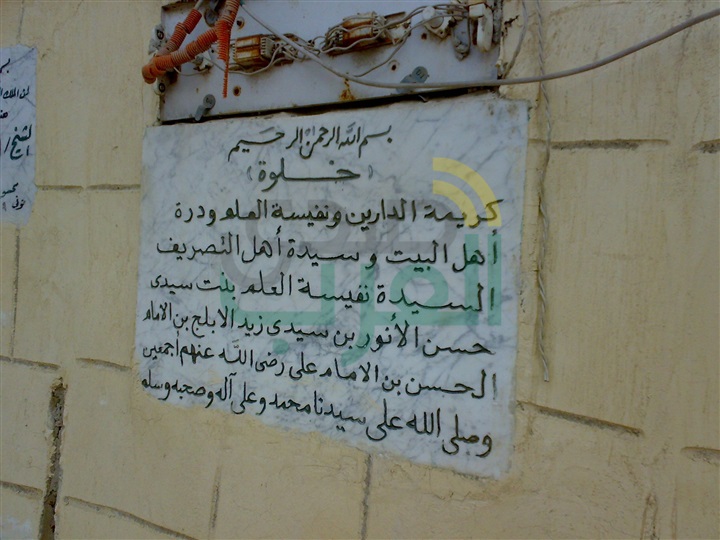 بسم الله الرحمن الرحيم
( خلوة )
كريمة الدارين ونفيسة العلم ودرة
أهل البيت وسيدة أهل التصريف
السيدة نفيسة العلم بنت سيدى
حسن الأنور بن سيدى زيد الابلج بن الامام
الحسن بن الامام على رضى الله عنهم أجمعين
وصلى الله على سيدنا محمد وعلى آله وصحبه وسلم
صدى
العرب